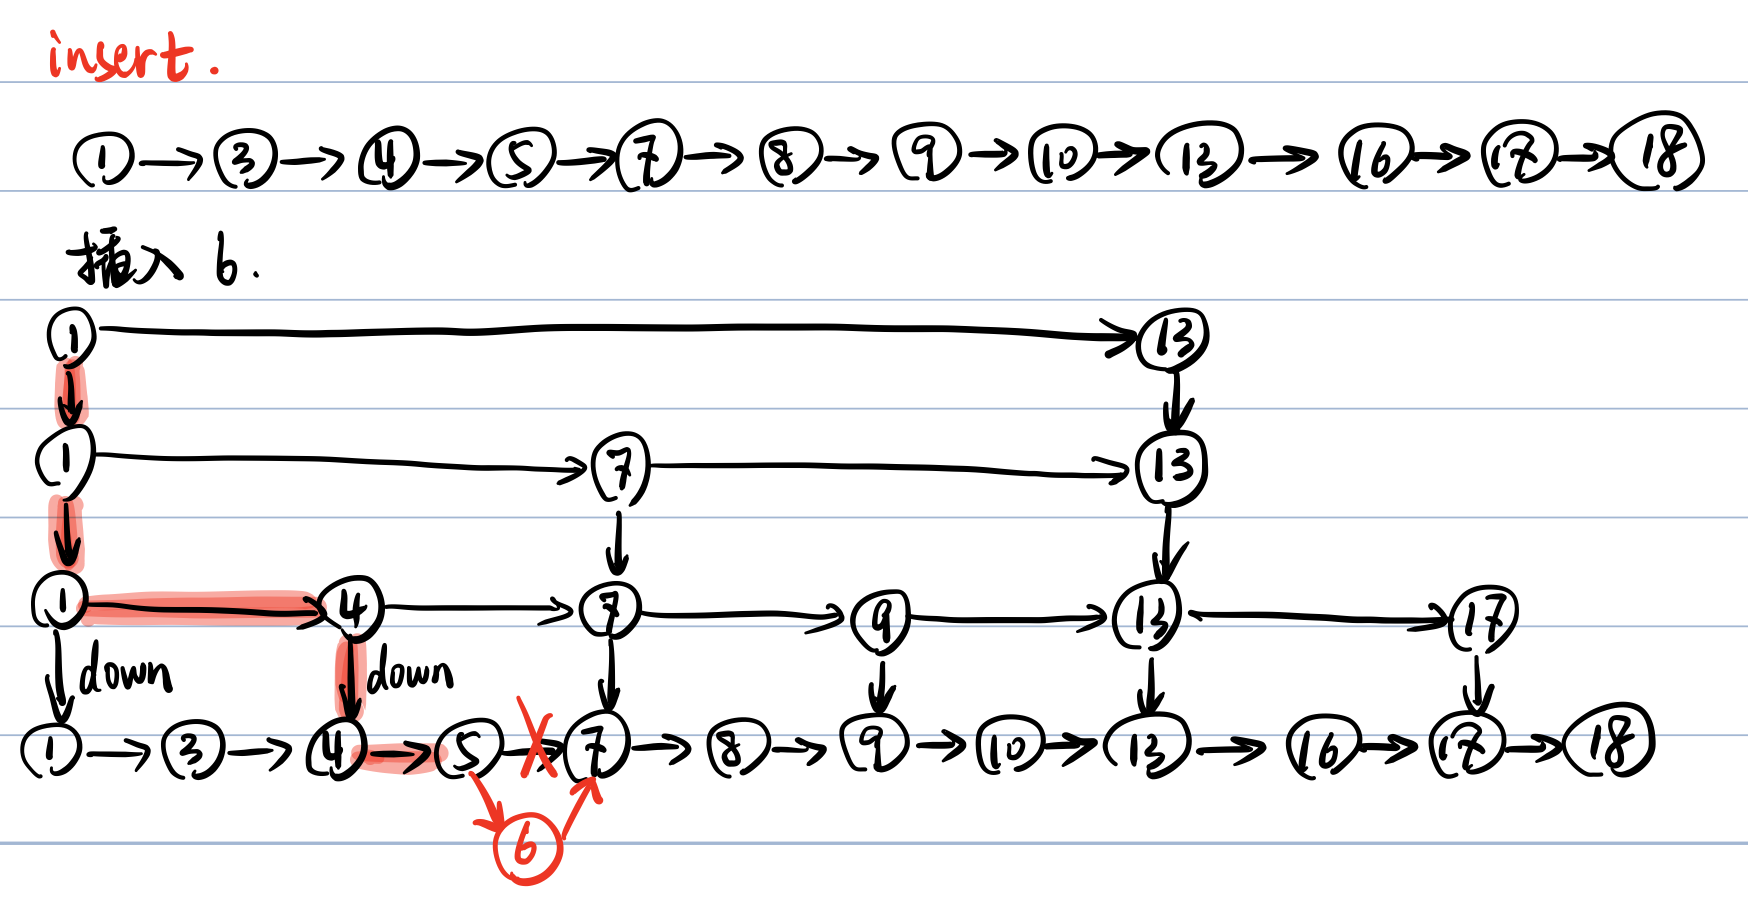 insert.
1 → 3 → 4 → 5 → 7 → 8 → 9 → 10 → 13 → 16 → 17 → 18
插入 6.
1 → 13
1 → 7 → 13
1 → 4 → 7 → 9 → 13 → 17
down down
1 → 3 → 4 → 5 → 7 → 8 → 9 → 10 → 13 → 16 → 17 → 18
6